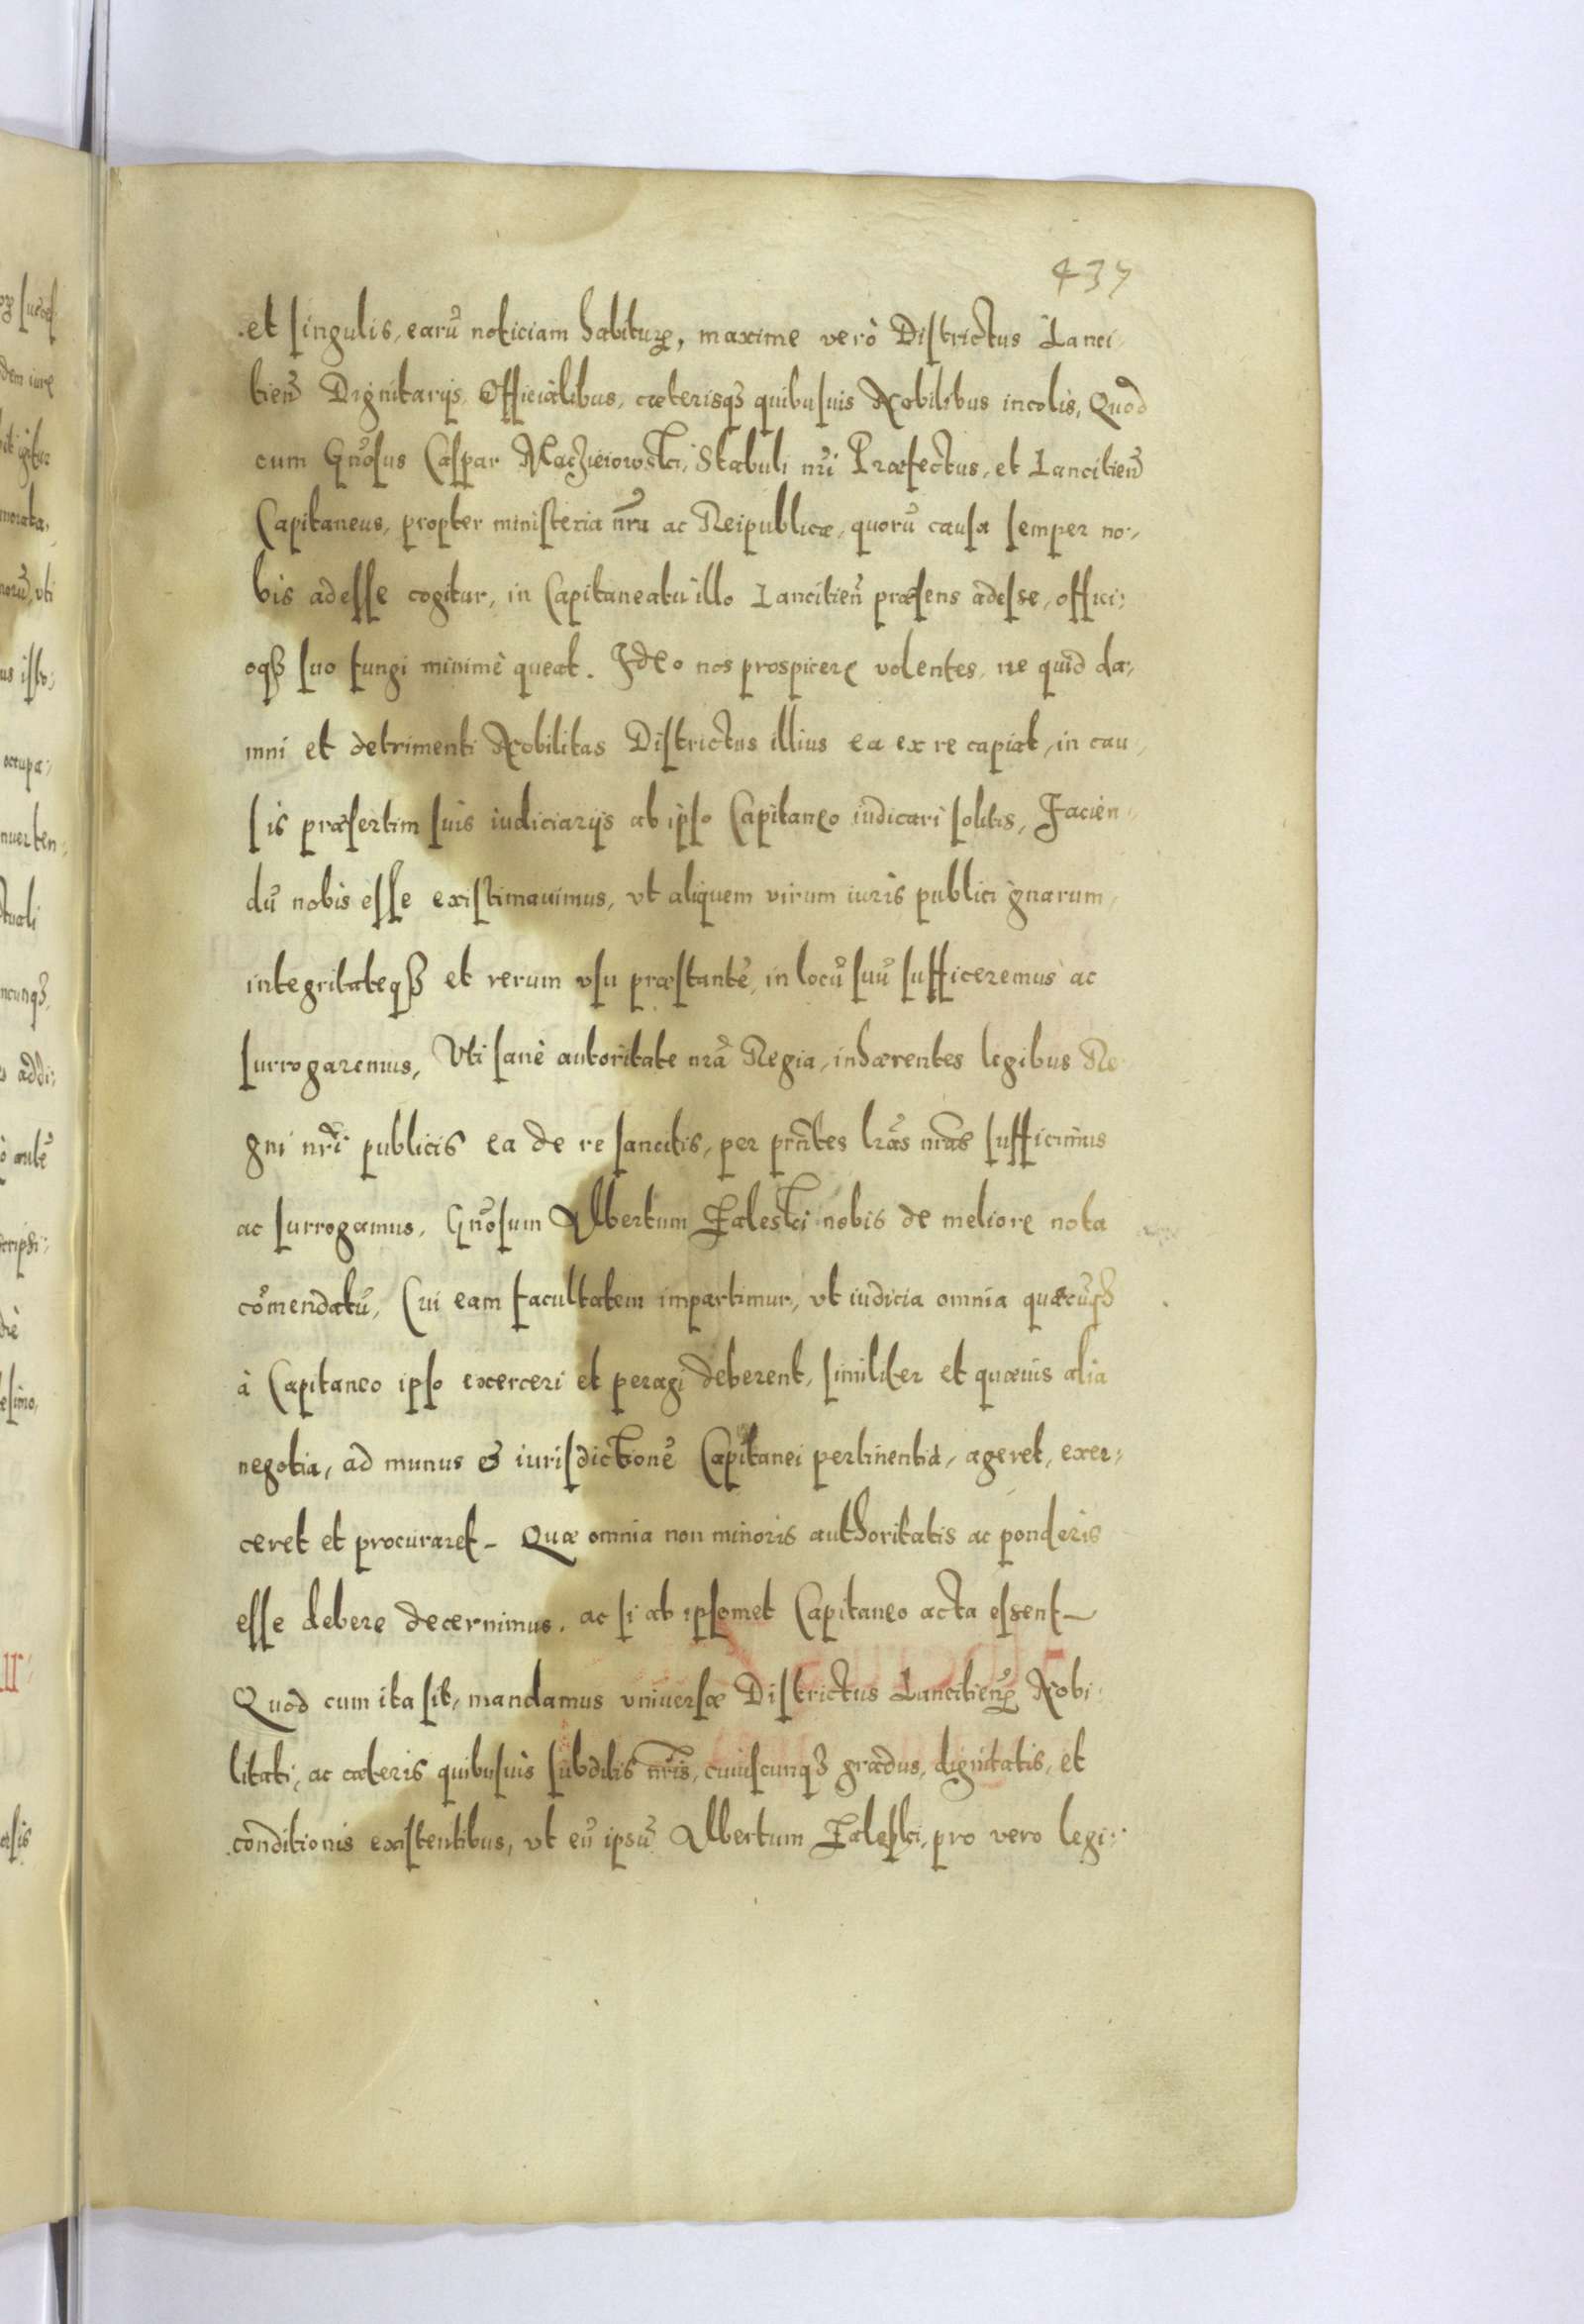 437
et singulis, earũ noticiam habiturꝭ, maxime verò Districtus Lanci-
tien̄ Dignitarijs, Officialibus, cæterisq₃ quibusuis Nobilibus incolis, Quod
cum Gn̄osus Caspar Maczieiowski, Stabuli nr̄i Præfectus, et Lancitien̄
Capitaneus, propter ministeria nr̄a ac Reipublicæ, quorũ causa semper no-
bis adesse cogitur, in Capitaneatu illo Lancitien̄ præsens adesse, offici:
oq₃ suo fungi minimè queat. Ideo nos prospicere volentes, ne quid da:
mni et detrimenti Nobilitas Districtus illius ea ex re capiat, in cau-
sis præsertim suis iudiciarijs ab ipso Capitaneo iudicari solitis, Facien-
dũ nobis esse existimauimus, vt aliquem virum iuris publici gnarum,
integritateq₃ et rerum vsu præstantẽ, in locũ suũ sufficeremus ac
surrogaremus, Vti sanè autoritate nr̄a Regia, inhærentes legibus Re-
gni nr̄i publicis ea de re sancitis, per prn̄tes lr̄as nr̄as sufficimus
ac surrogamus, Gn̄osum Albertum Zaleski nobis de meliore nota
com̄endatũ, Cui eam facultatem impartimur, vt iudicia omnia quæcũq₃
à Capitaneo ipso exerceri et peragi deberent, similiter et quæuis alia
negotia, ad munus & iurisdictionẽ Capitanei pertinentia, ageret, exer:
ceret et procuraret - Quæ omnia non minoris authoritatis ac ponderis
esse debere decernimus, ac si ab ipsomet Capitaneo acta essent -
Quod cum ita sit, mandamus vniuersæ Districtus Lancitien̄ Nobi:
litati, ac cæteris quibusuis subditis nr̄is, cuiuscunq₃ gradus, dignitatis, et
conditionis existentibus, vt eũ ipsũ Albertum Zaleski, pro vero legi: